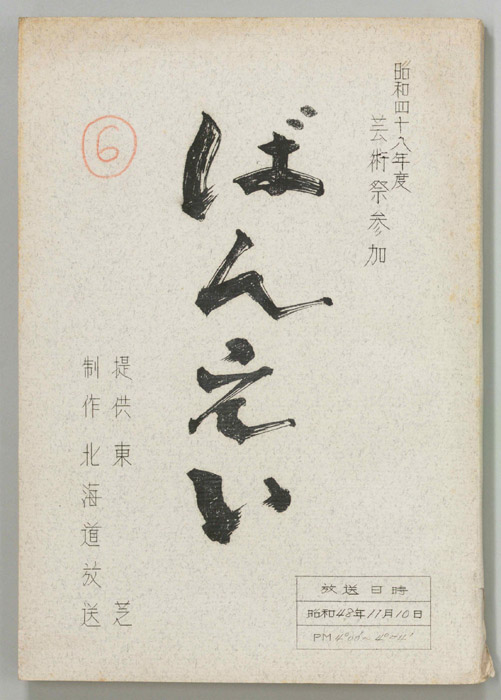 昭和四十八年度
芸術祭参加
ばんえい
⑥
提供 東芝
制作 北海道放送
放送日時
昭和48年11月10日
PM